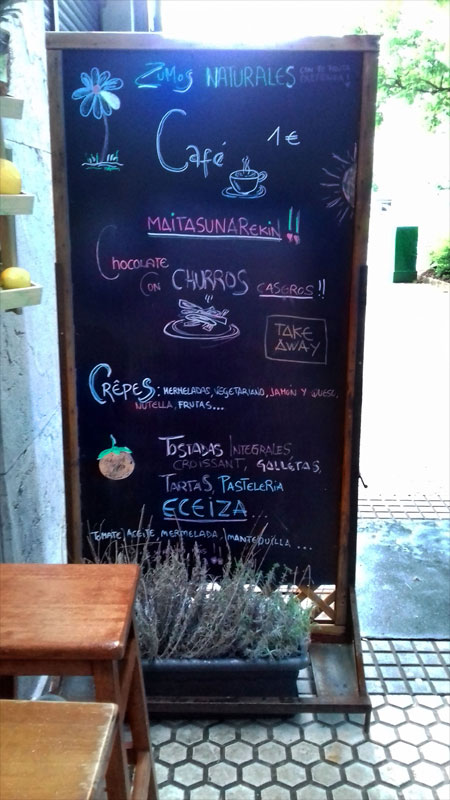 Zumos NATURALES
Café 1€
MAITASUNAREKIN!!
CHOCOLATE
CON CHURROS CASEROS!!
TAKE
AWAY
CRÊPES: MERMELADAS, VEGETARIANO, JAMÓN Y QUESO,
NUTELLA, FRUTAS...
TOSTADAS INTEGRALES
CROISSANT, GALLETAS,
TARTAS, PASTELERIA
ECEIZA...
TOMATE, ACEITE, MERMELADA, MANTEQUILLA...